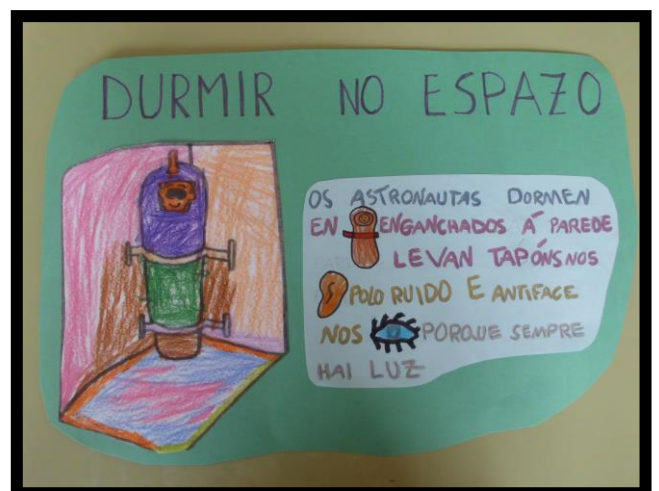 DURMIR NO ESPAZO
OS ASTRONAUTAS DORMEN
EN ENGANCHADOS Á PAREDE
LEVAN TAPÓNS NOS
POLO RUIDO E ANTIFACE
NOS PORQUE SEMPRE
HAI LUZ